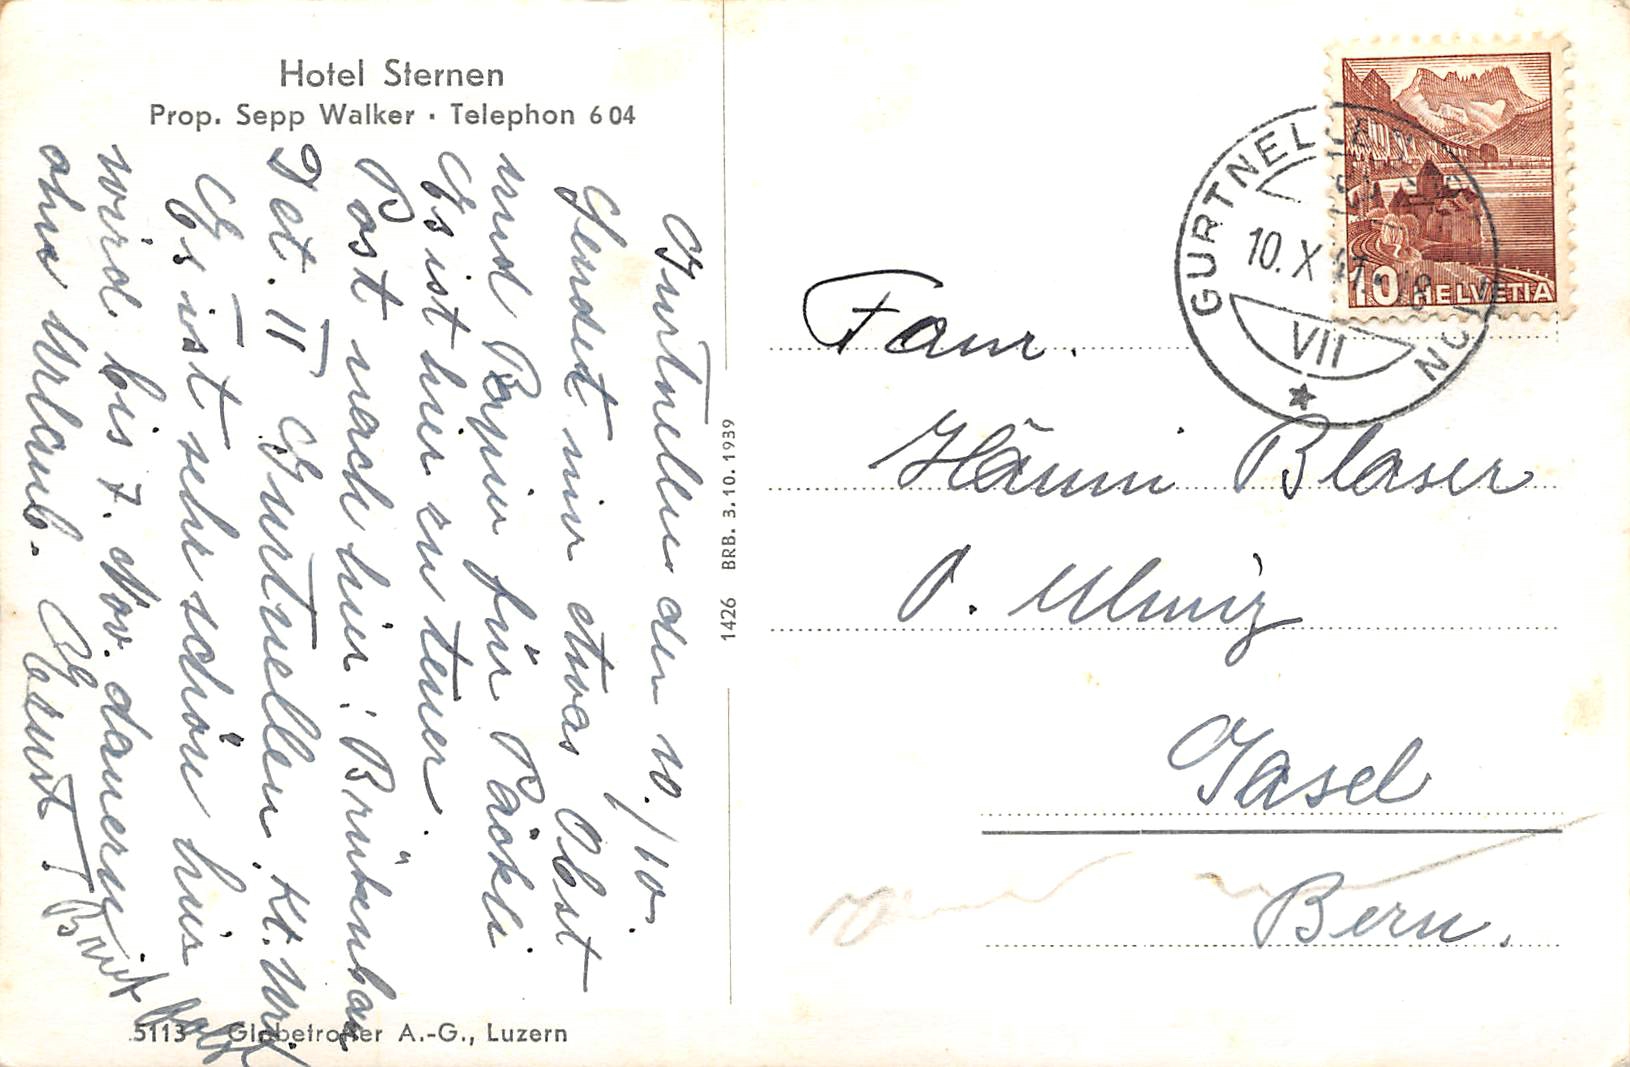 Hotel Sternen
Prop. Sepp Walker · Telephon 6 04
Gurtnellen den 10./10.
Sendet mir etwas Obst
und Papier für Päckli
Es ist hier zu teuer.
Post nach hier: Brükenbau
Det. II Gurtnellen Kt. Uri.
Es ist sehr schön hier
wird bis 7. Nov. dauern
ohne Urlaub. Ernst
1426 BRB. 3.10.1939
5113 Globetrotter A.-G., Luzern
GURTNELLEN
10. X 47
VII
10 HELVETIA
Fam.
Hänni Blaser
O. Ulmiz
Gasel
Bern.